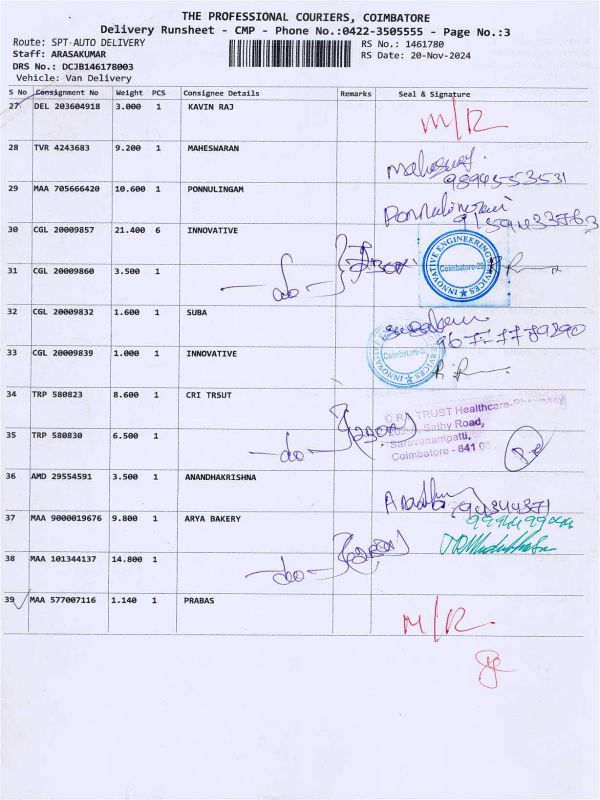 THE PROFESSIONAL COURIERS, COIMBATORE
Delivery Runsheet - CMP - Phone No.:0422-3505555 - Page No.:3
Route: SPT-AUTO DELIVERY RS No.: 1461780
Staff: ARASAKUMAR RS Date: 20-Nov-2024
DRS No.: DCJB146178003
Vehicle: Van Delivery
S No Consignment No Weight PCS Consignee Details Remarks Seal & Signature
27 DEL 203604918 3.000 1 KAVIN RAJ M/R
28 TVR 4243683 9.200 1 MAHESWARAN
29 MAA 705666420 10.600 1 PONNULINGAM
30 CGL 20009857 21.400 6 INNOVATIVE
INNOVATIVE ENGINEERING SERVICES Coimbatore-29
31 CGL 20009860 3.500 1 do
32 CGL 20009832 1.600 1 SUBA
33 CGL 20009839 1.000 1 INNOVATIVE
34 TRP 580823 8.600 1 CRI TRSUT
TRUST Healthcare-Pharmacy
Sathy Road,
Saravanampatti,
Coimbatore - 641 03
35 TRP 580830 6.500 1 do
36 AMD 29554591 3.500 1 ANANDHAKRISHNA
37 MAA 9000019676 9.800 1 ARYA BAKERY
38 MAA 101344137 14.800 1 do
39 MAA 577007116 1.140 1 PRABAS M/R